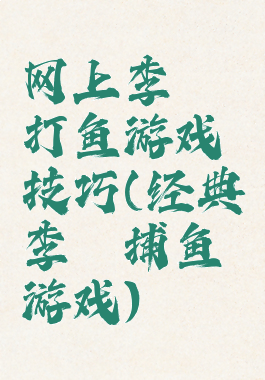 网上李
打鱼游戏
技巧(经典
李 捕鱼
游戏)